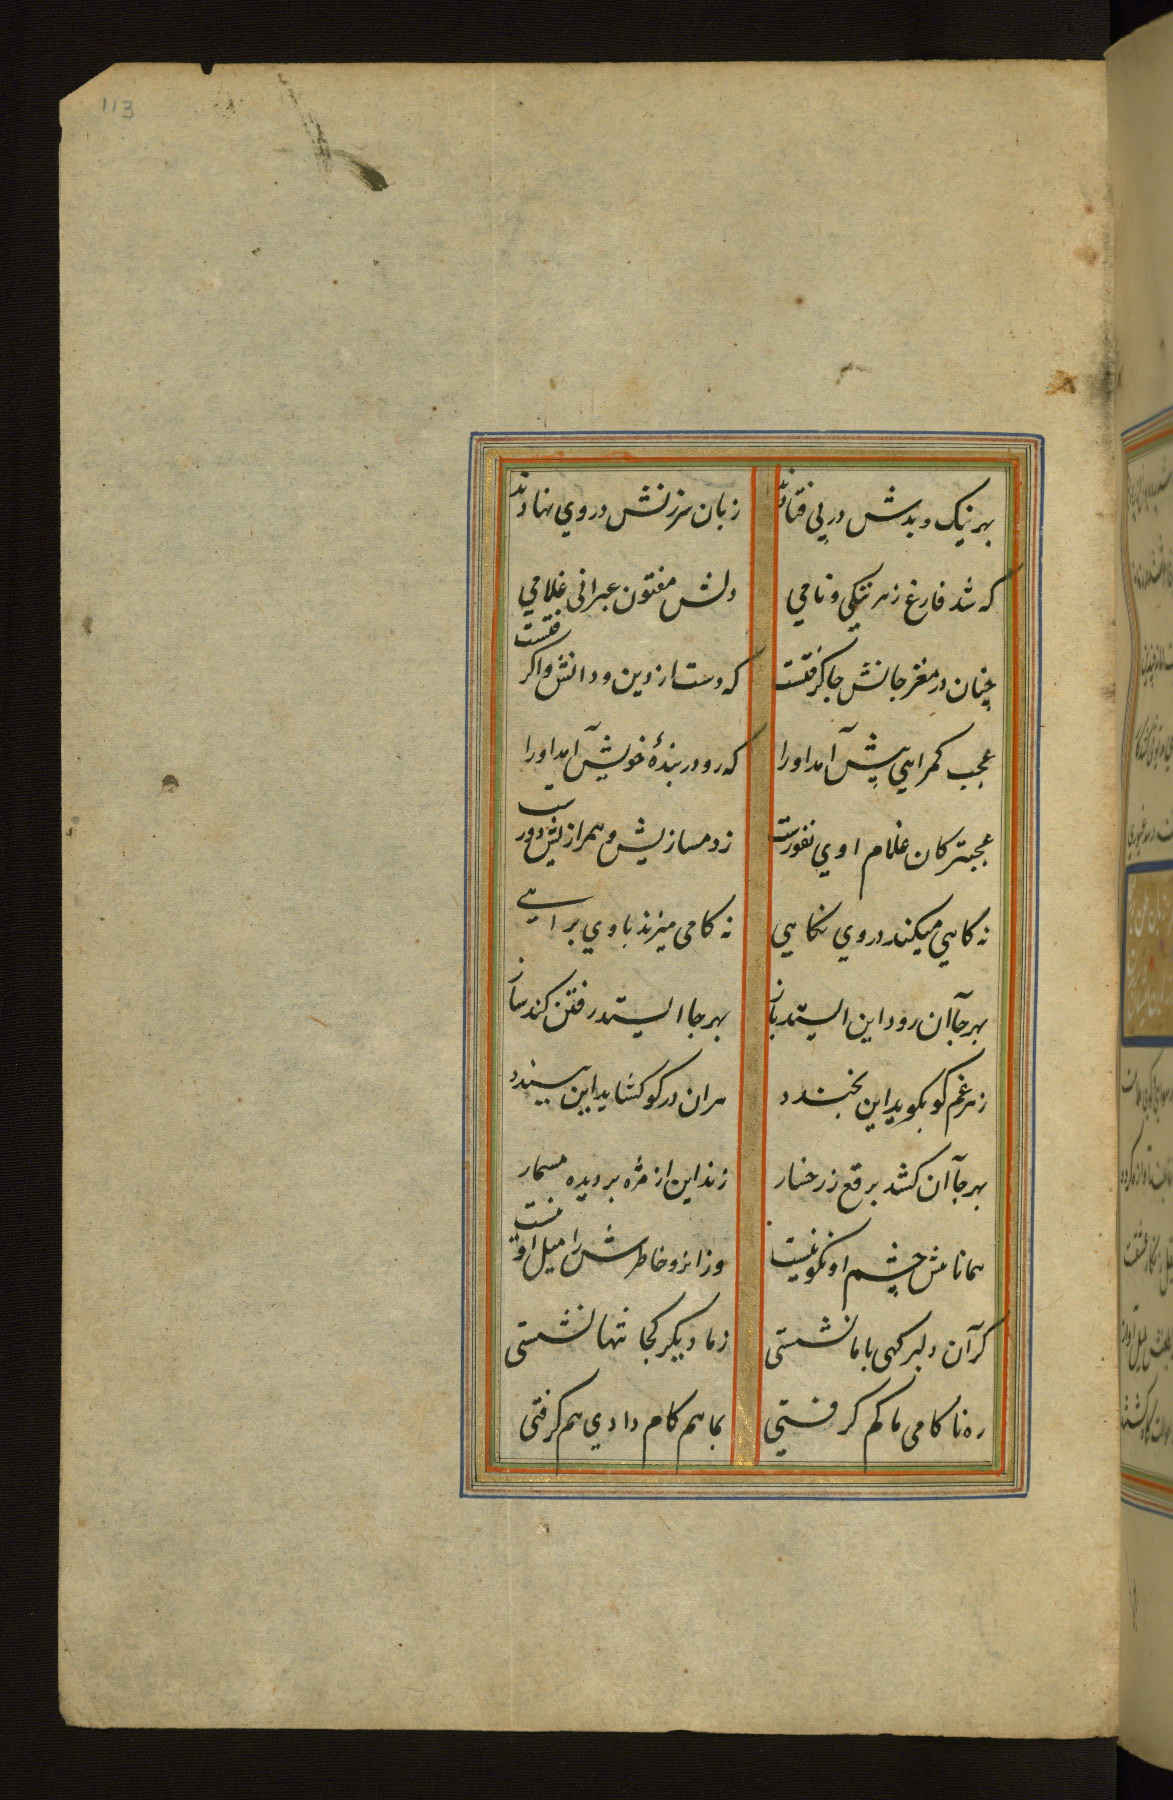 113
بهر نیک و بدش در پی فتادند زبان سرزنش در وی نهادند
که شد فارغ ز هر ننگی و نامی دلش مفتون عبرانی غلامی
چنان در مغز جانش جا گرفتست که دست از دین و دانش وا گرفتست
عجب کمراهیی پیش آمد او را که رو در بندهٔ خویش آمد او را
عجبتر کان غلام از وی نفورست ز دمسازیش و همرازیش دورست
نه کاهی میکند در وی نکاهی نه کامی میزند با وی براهی
بهر جا آن رود این ایستد باز بهر جا ایستد رفتن کند ساز
ز هر غم کو بکوید این بخندد هر آن در کو کشاید این ببندد
بهر جا آن کشد برقع ز رخسار زند این از مژه بر دیده مسمار
همانا پیش چشم او نکو نیست وز آنرو خاطرش را میل او نیست
گر آن دلبر کهی با ما نشستی ز ما دیکر کجا تنها نشستی
ره ناکامی ما کم کرفتی بما هم کام دادی هم کرفتی